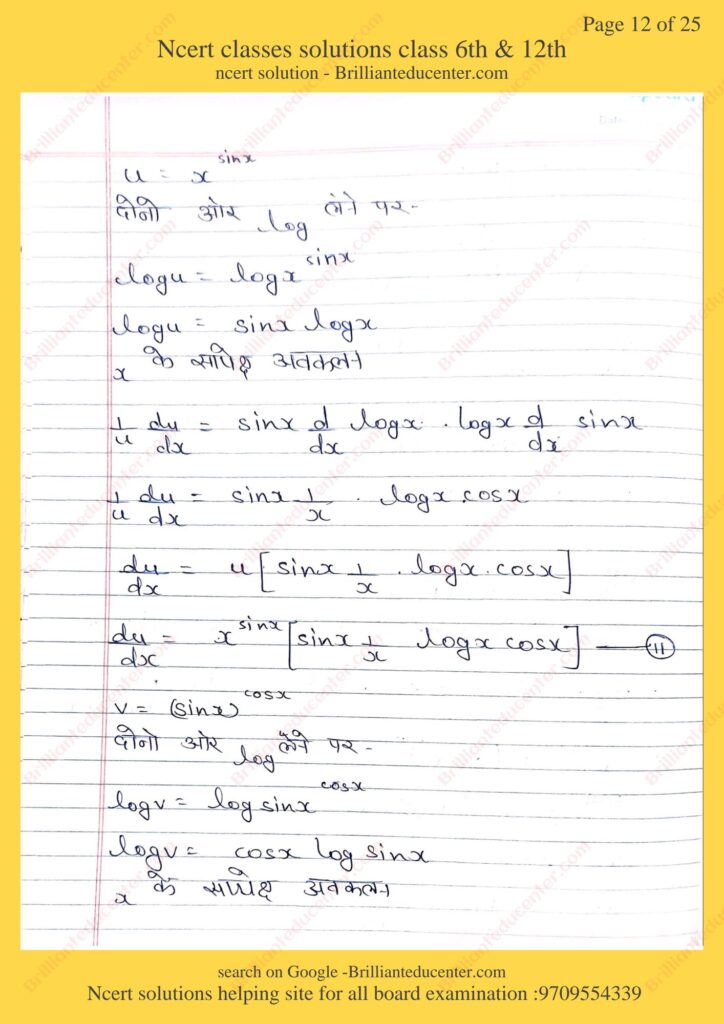 Page 12 of 25
Ncert classes solutions class 6th & 12th
ncert solution - Brillianteducenter.com
Date
u = x^sinx
दोनो ओर log लेने पर-
logu = logx^sinx
logu = sinx logx
x के सापेक्ष अवकलन
1/u du/dx = sinx d/dx logx . logx d/dx sinx
1/u du/dx = sinx 1/x . logx.cosx
du/dx = u[sinx 1/x . logx.cosx]
du/dx = x^sinx[sinx 1/x logx cosx] — (11)
v = (sinx)^cosx
दोनो ओर log लेने पर-
logv = log sinx^cosx
logv = cosx log sinx
x के सापेक्ष अवकलन
search on Google -Brillianteducenter.com
Ncert solutions helping site for all board examination :9709554339